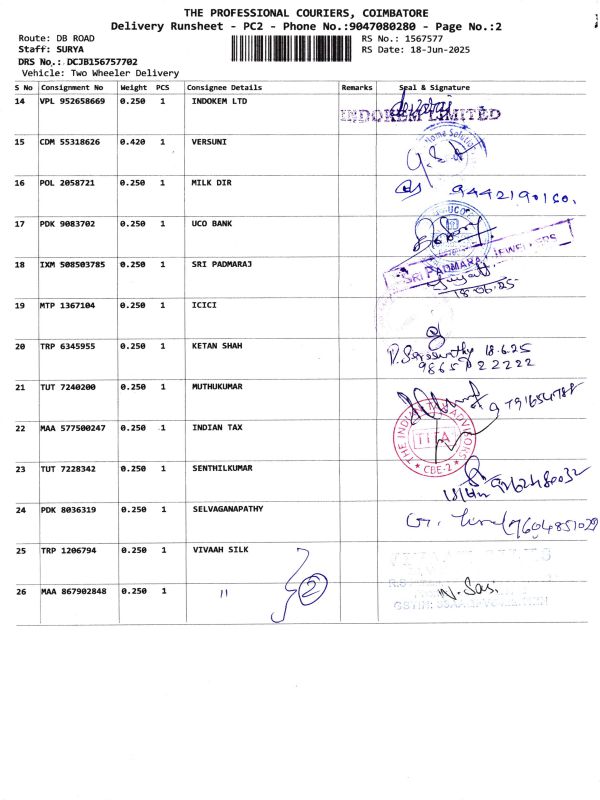 THE PROFESSIONAL COURIERS, COIMBATORE
Delivery Runsheet - PC2 - Phone No.:9047080280 - Page No.:2
Route: DB ROAD RS No.: 1567577
Staff: SURYA RS Date: 18-Jun-2025
DRS No.: DCJB156757702
Vehicle: Two Wheeler Delivery
S No Consignment No Weight PCS Consignee Details Remarks Seal & Signature
14 VPL 952658669 0.250 1 INDOKEM LTD
INDOKEM LIMITED
15 CDM 55318626 0.420 1 VERSUNI
Home Solutions
16 POL 2058721 0.250 1 MILK DIR
9442190160.
17 PDK 9083702 0.250 1 UCO BANK
UCO
18 IXM 508503785 0.250 1 SRI PADMARAJ
SRI PADMARAJ JEWELLERS
18.06.25
19 MTP 1367104 0.250 1 ICICI
20 TRP 6345955 0.250 1 KETAN SHAH
18.6.25
21 TUT 7240200 0.250 1 MUTHUKUMAR
22 MAA 577500247 1 INDIAN TAX
THE INDIAN TAX ADVISORS
TITA
CBE-2
23 TUT 7228342 0.250 1 SENTHILKUMAR
24 PDK 8036319 0.250 1 SELVAGANAPATHY
G.
9604851029
25 TRP 1206794 0.250 1 VIVAAH SILK
26 MAA 867902848 0.250 1 " 2
N. Sasi